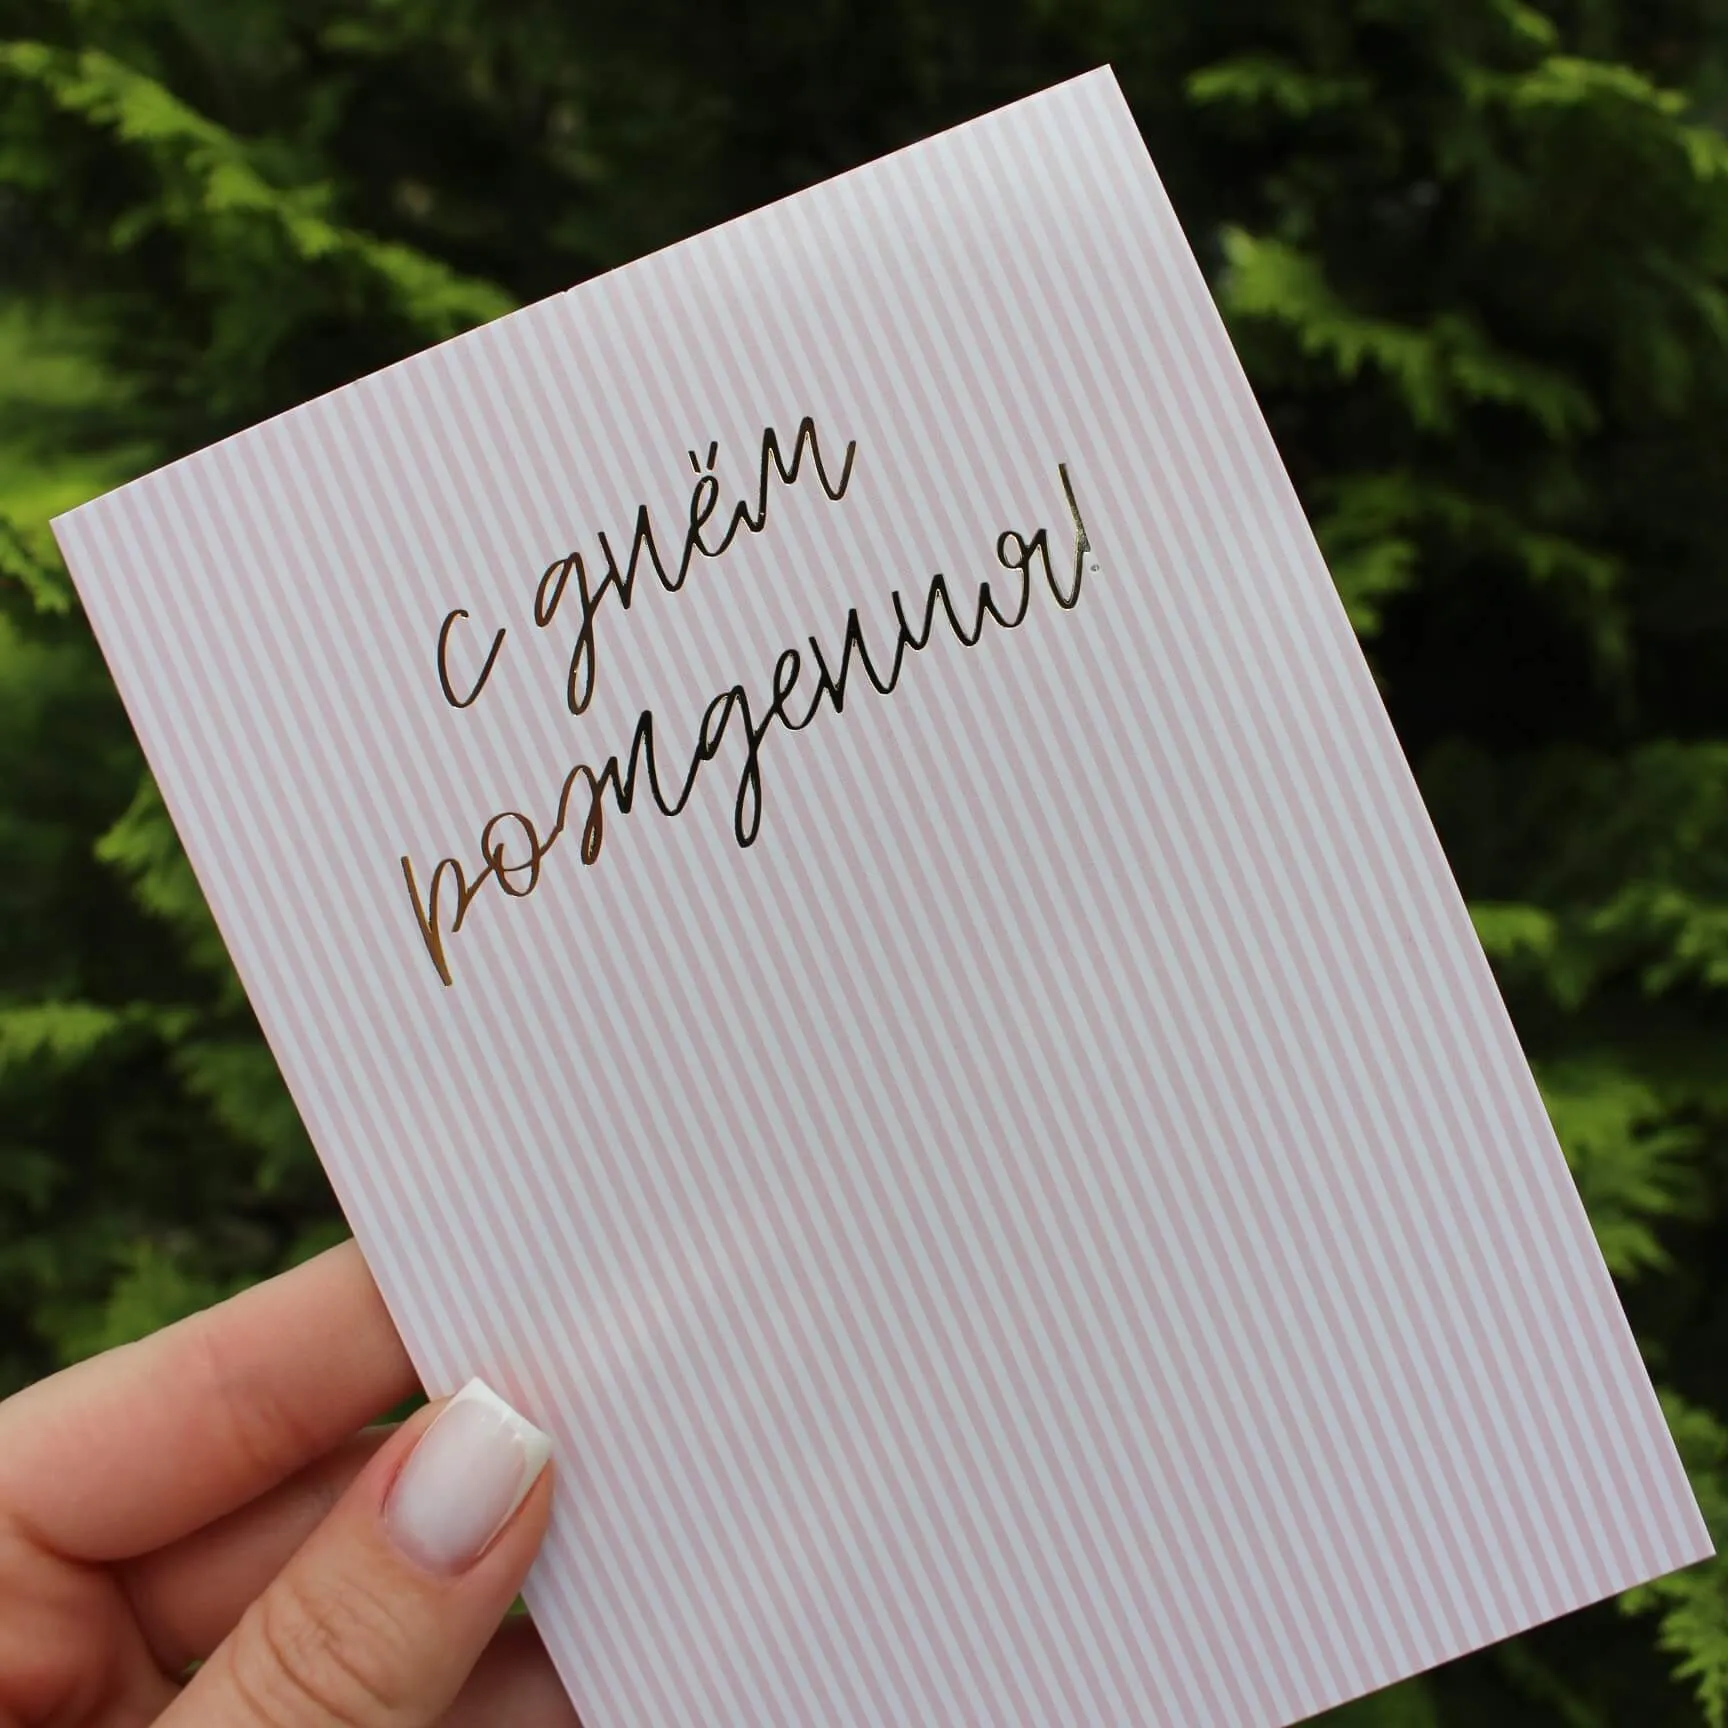 с днём
рождения!